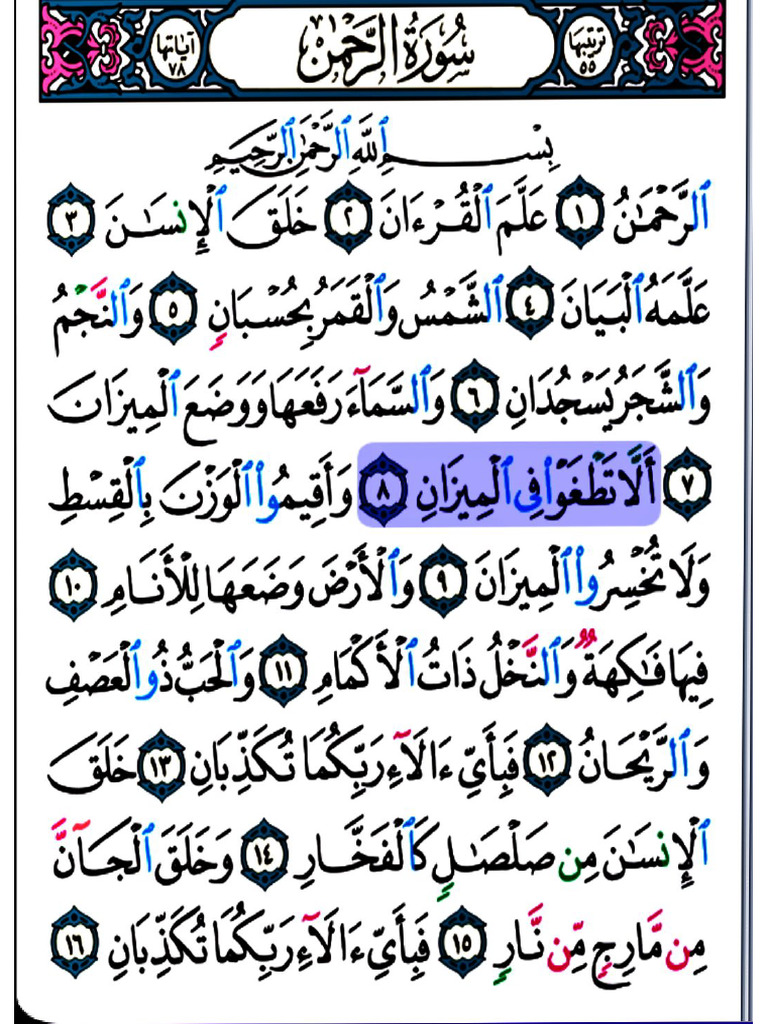 ترتيبها ٥٥ سُورَةُ الرَّحْمَٰن آياتها ٧٨
بِسْمِ ٱللَّهِ ٱلرَّحْمَٰنِ ٱلرَّحِيمِ
ٱلرَّحْمَٰنُ ١ عَلَّمَ ٱلْقُرْءَانَ ٢ خَلَقَ ٱلْإِنسَٰنَ ٣
عَلَّمَهُ ٱلْبَيَانَ ٤ ٱلشَّمْسُ وَٱلْقَمَرُ بِحُسْبَانٍ ٥ وَٱلنَّجْمُ
وَٱلشَّجَرُ يَسْجُدَانِ ٦ وَٱلسَّمَآءَ رَفَعَهَا وَوَضَعَ ٱلْمِيزَانَ
٧ أَلَّا تَطْغَوْا۟ فِى ٱلْمِيزَانِ ٨ وَأَقِيمُوا۟ ٱلْوَزْنَ بِٱلْقِسْطِ
وَلَا تُخْسِرُوا۟ ٱلْمِيزَانَ ٩ وَٱلْأَرْضَ وَضَعَهَا لِلْأَنَامِ ١٠
فِيهَا فَٰكِهَةٌ وَٱلنَّخْلُ ذَاتُ ٱلْأَكْمَامِ ١١ وَٱلْحَبُّ ذُو ٱلْعَصْفِ
وَٱلرَّيْحَانُ ١٢ فَبِأَىِّ ءَالَآءِ رَبِّكُمَا تُكَذِّبَانِ ١٣ خَلَقَ
ٱلْإِنسَٰنَ مِن صَلْصَٰلٍ كَٱلْفَخَّارِ ١٤ وَخَلَقَ ٱلْجَآنَّ
مِن مَّارِجٍ مِّن نَّارٍ ١٥ فَبِأَىِّ ءَالَآءِ رَبِّكُمَا تُكَذِّبَانِ ١٦